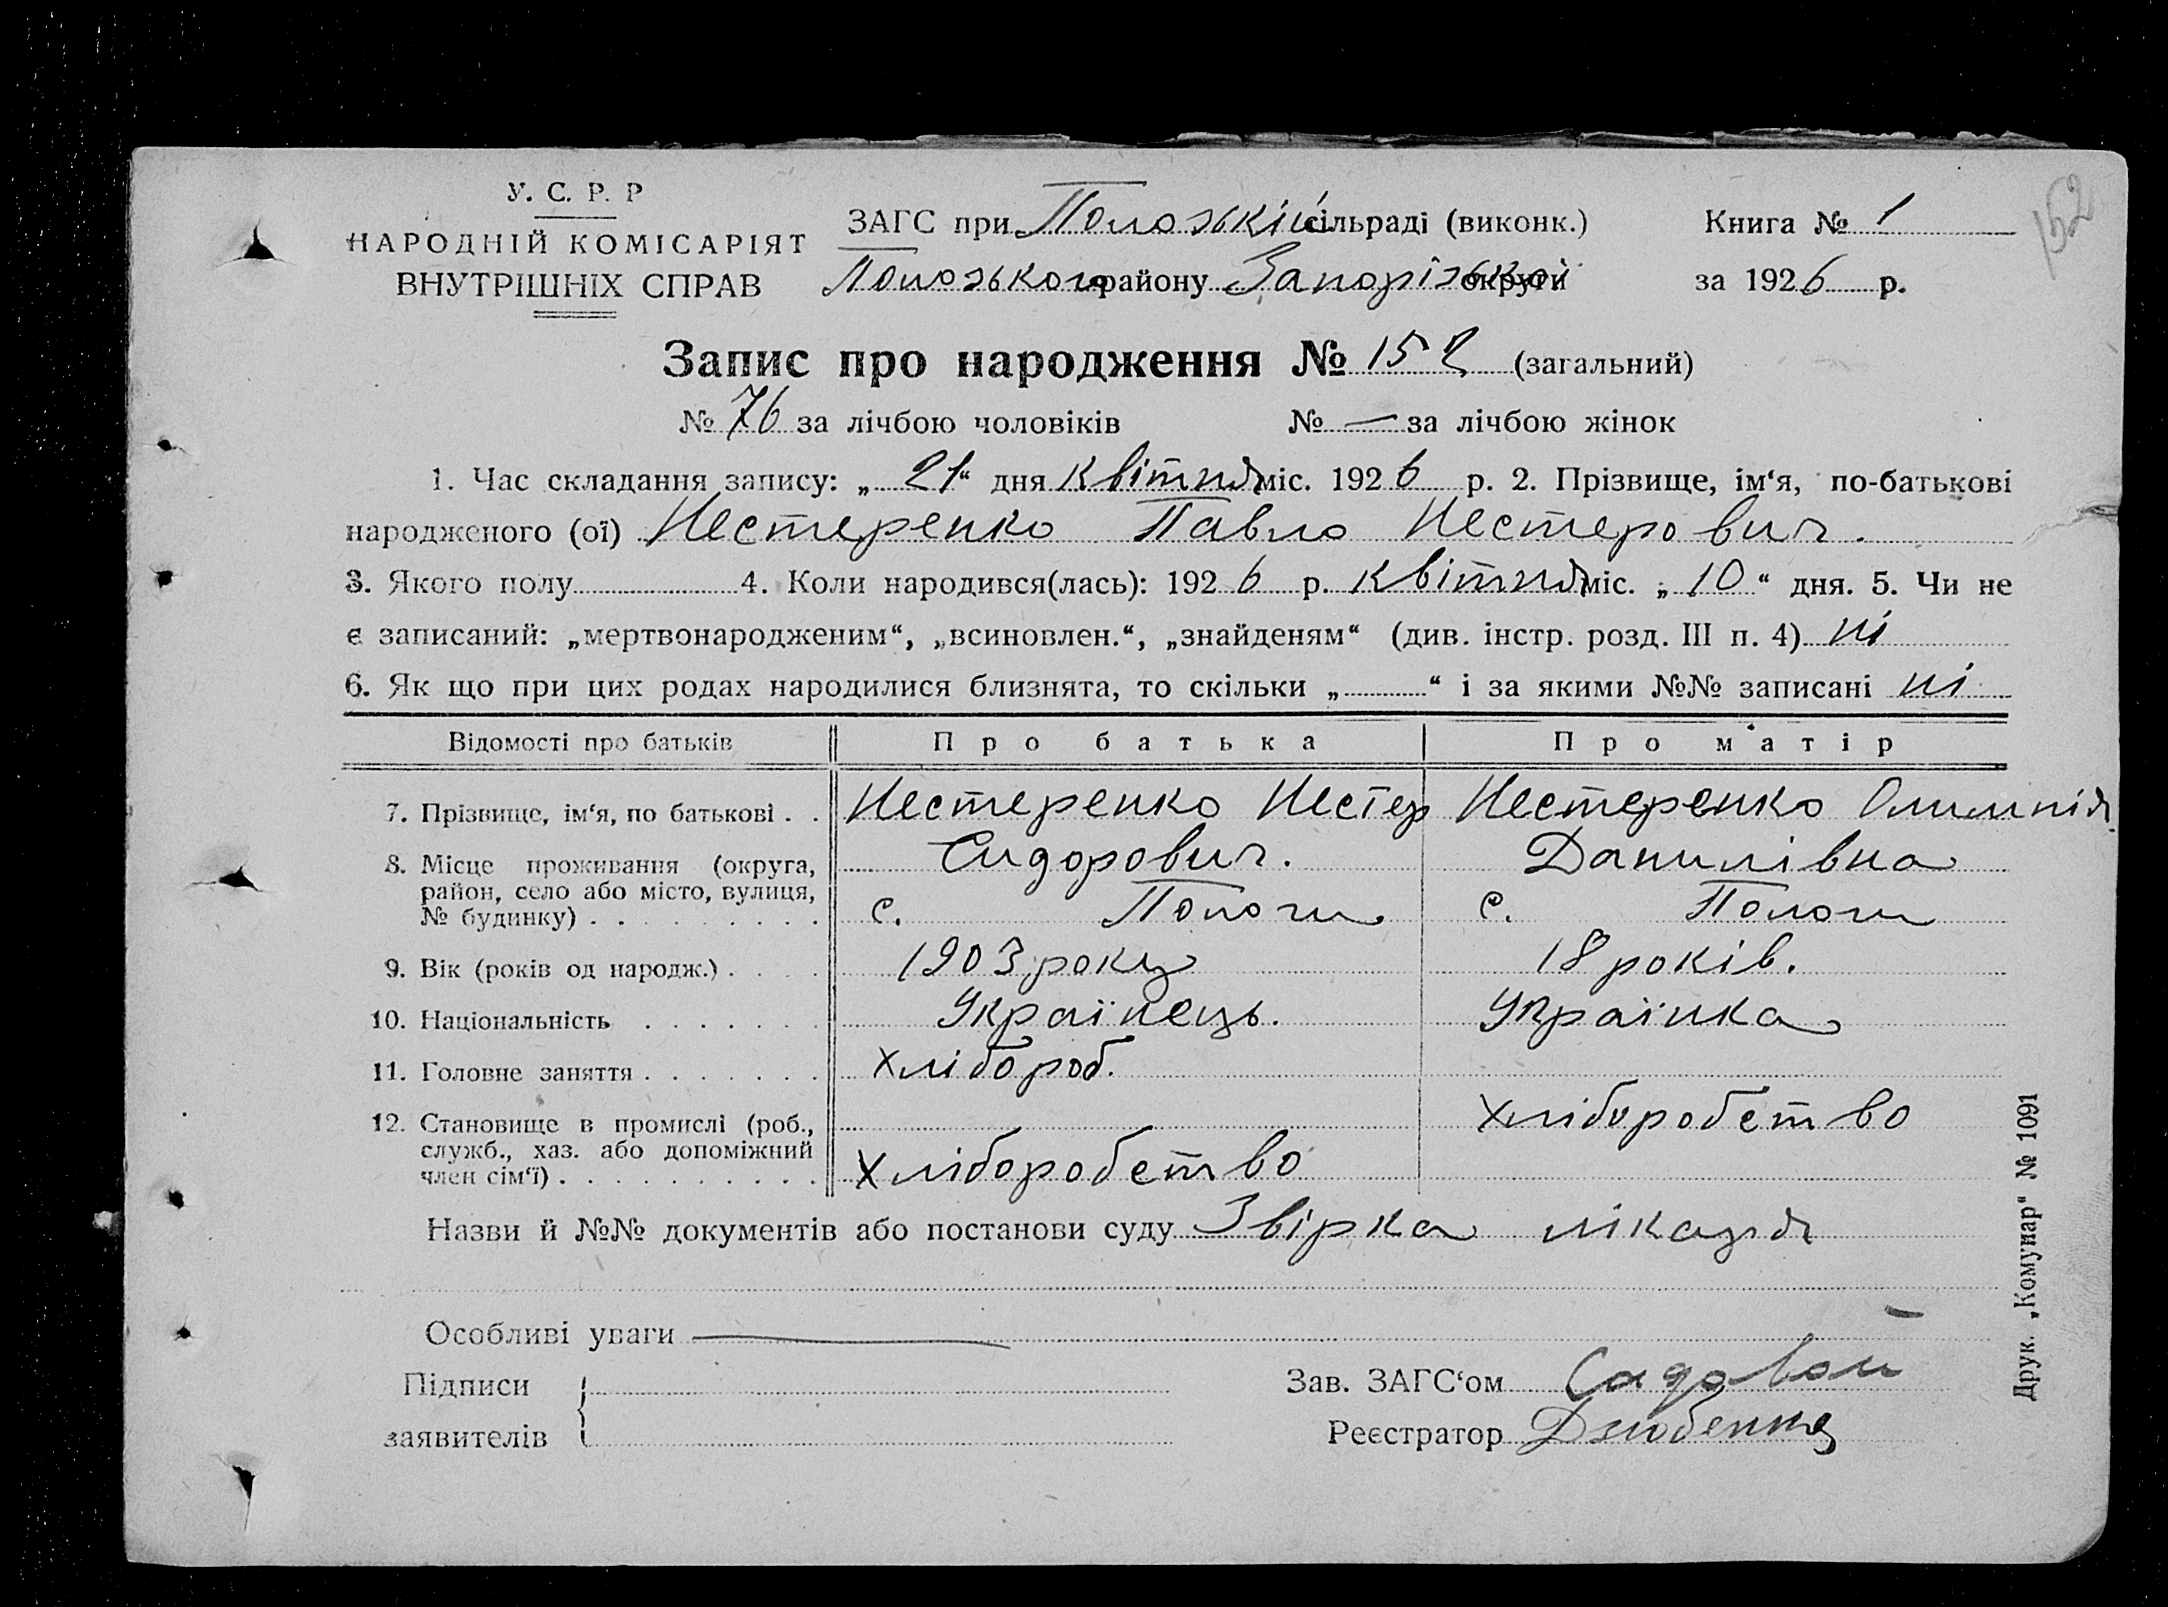 У. С. Р. Р
НАРОДНІЙ КОМІСАРІЯТ
ВНУТРІШНІХ СПРАВ
ЗАГС при Полозькій сільраді (виконк.)
Полозького району Запорізької округи
Книга № 1
за 1926 р.
152
Запис про народження № 152 (загальний)
№ 76 за лічбою чоловіків № — за лічбою жінок
1. Час складання запису: „21“ дня квітня міс. 1926 р. 2. Прізвище, ім‘я, по-батькові
народженого (ої) Нестеренко Павло Нестерович.
3. Якого полу 4. Коли народився(лась): 1926 р. квітня міс. „10“ дня. 5. Чи не
є записаний: „мертвонародженим“, „всиновлен.“, „знайденям“ (див. інстр. розд. III п. 4) ні
6. Як що при цих родах народилися близнята, то скільки „ “ і за якими №№ записані ні
Відомості про батьків Про батька Про матір
7. Прізвище, ім‘я, по батькові . . Нестеренко Нестер Нестеренко Олимпія
Сидорович. Данилівна
8. Місце проживання (округа,
район, село або місто, вулиця,
№ будинку) . . . . . . . . . с. Пологи с. Пологи
9. Вік (років од народж.) . . . . 1903 року 18 років.
10. Національність . . . . . . . Українець. Українка
11. Головне заняття . . . . . . . Хлібороб.
12. Становище в промислі (роб.,
служб., хаз. або допоміжний
член сім‘ї) . . . . . . . . . . Хліборобство Хліборобство
Назви й №№ документів або постанови суду Звірка лікаря
Особливі уваги —
Підписи
заявителів
Зав. ЗАГС‘ом Садовой
Реєстратор Дзюбенко
Друк. „Комунар“ № 1091